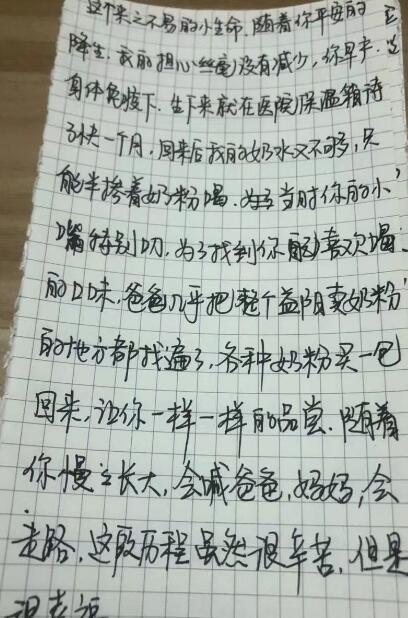 这个来之不易的小生命,随着你平安的
降生,我的担心丝毫没有减少,你早产,
身体免疫下,生下来就在医院保温箱待
了快一个月,回来后我的奶水又不够,只
能半掺着奶粉喝,为了当时你的小
嘴特别叨,为了找到你能喜欢喝
的口味,爸爸几乎把整个益阳卖奶粉
的地方都找遍了,各种奶粉买一包
回来,让你一样一样的品尝.随着
你慢慢长大,会喊爸爸,妈妈,会
走路,这段历程虽然很辛苦,但是
很幸福